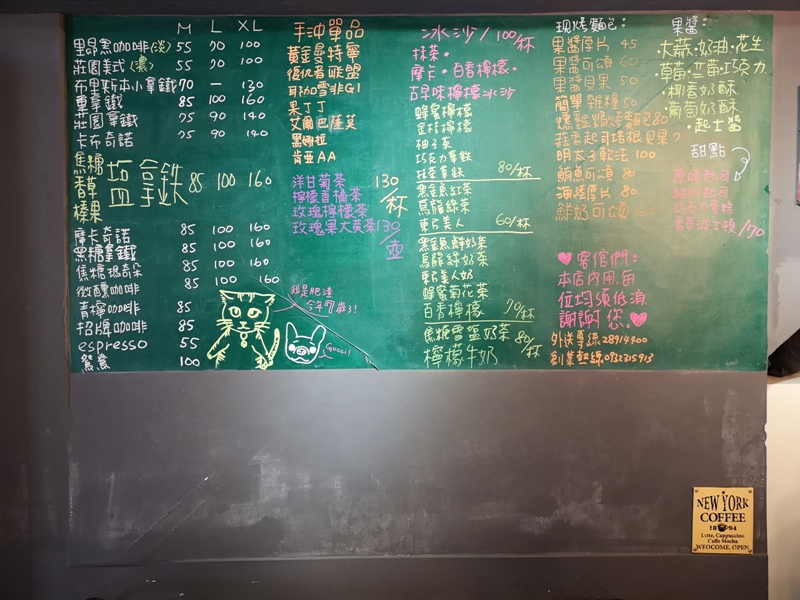 M L XL
里昂黑咖啡(淡) 55 70 100
莊園美式(濃) 55 70 100
布里斯本小拿鐵 70 — 130
重拿鐵 85 100 160
莊園拿鐵 75 90 140
卡布奇諾 75 90 140
焦糖
香草
榛果
鹽拿鐵 85 100 160
摩卡奇諾 85 100 160
黑糖拿鐵 85 100 160
焦糖瑪奇朵 85 100 160
微醺咖啡 85 100 160
青檸咖啡 85
招牌咖啡 85
espresso 55
鴛鴦 100
手沖單品
黃金曼特寧
復仇者聯盟
耶加雪啡G1
果丁丁
艾爾巴薩芙
黑娜拉
肯亞AA
洋甘菊茶 130/杯
檸檬香橘茶
玫瑰檸檬茶
玫瑰果大黃茶 130/壺
我是肥渣
今年7歲了!
Gucci!
冰沙/100/杯
抹茶。
摩卡。百香檸檬。
古早味檸檬冰沙
蜂蜜檸檬
金桔檸檬
柚子茶
巧克力拿鐵
抹茶拿鐵 80/杯
黑金蔥紅茶
烏龍綠茶
東方美人 60/杯
黑金蔥鮮奶茶
烏龍綠奶茶
東方美人奶
蜂蜜菊花茶
百香檸檬 70/杯
焦糖雪鹽奶茶 80/杯
檸檬牛奶
現烤麵包:
果醬厚片 45
果醬可頌 60
果醬貝果 50
簡單雜糧 50
燻雞焗烤麵包80
蒜香起司培根貝果
明太子軟法 100
鮪魚可頌 80
海陸厚片 80
鮮奶可頌
♥客倌們:
本店內用.每
位均須低消
謝謝您.♥
外送專線:28914400
創業熱線:0932315913
果醬:
·大蒜·奶油·花生
·草莓·藍莓·巧克力
·椰香奶酥
·葡萄奶酥
·起士醬
甜點
原味起司
巧克力蛋糕
香草波士頓 /70
NEW YORK
COFFEE
18 94
Latte, Cappuccino
Caffe Mocha
WFOCOME. OPEN